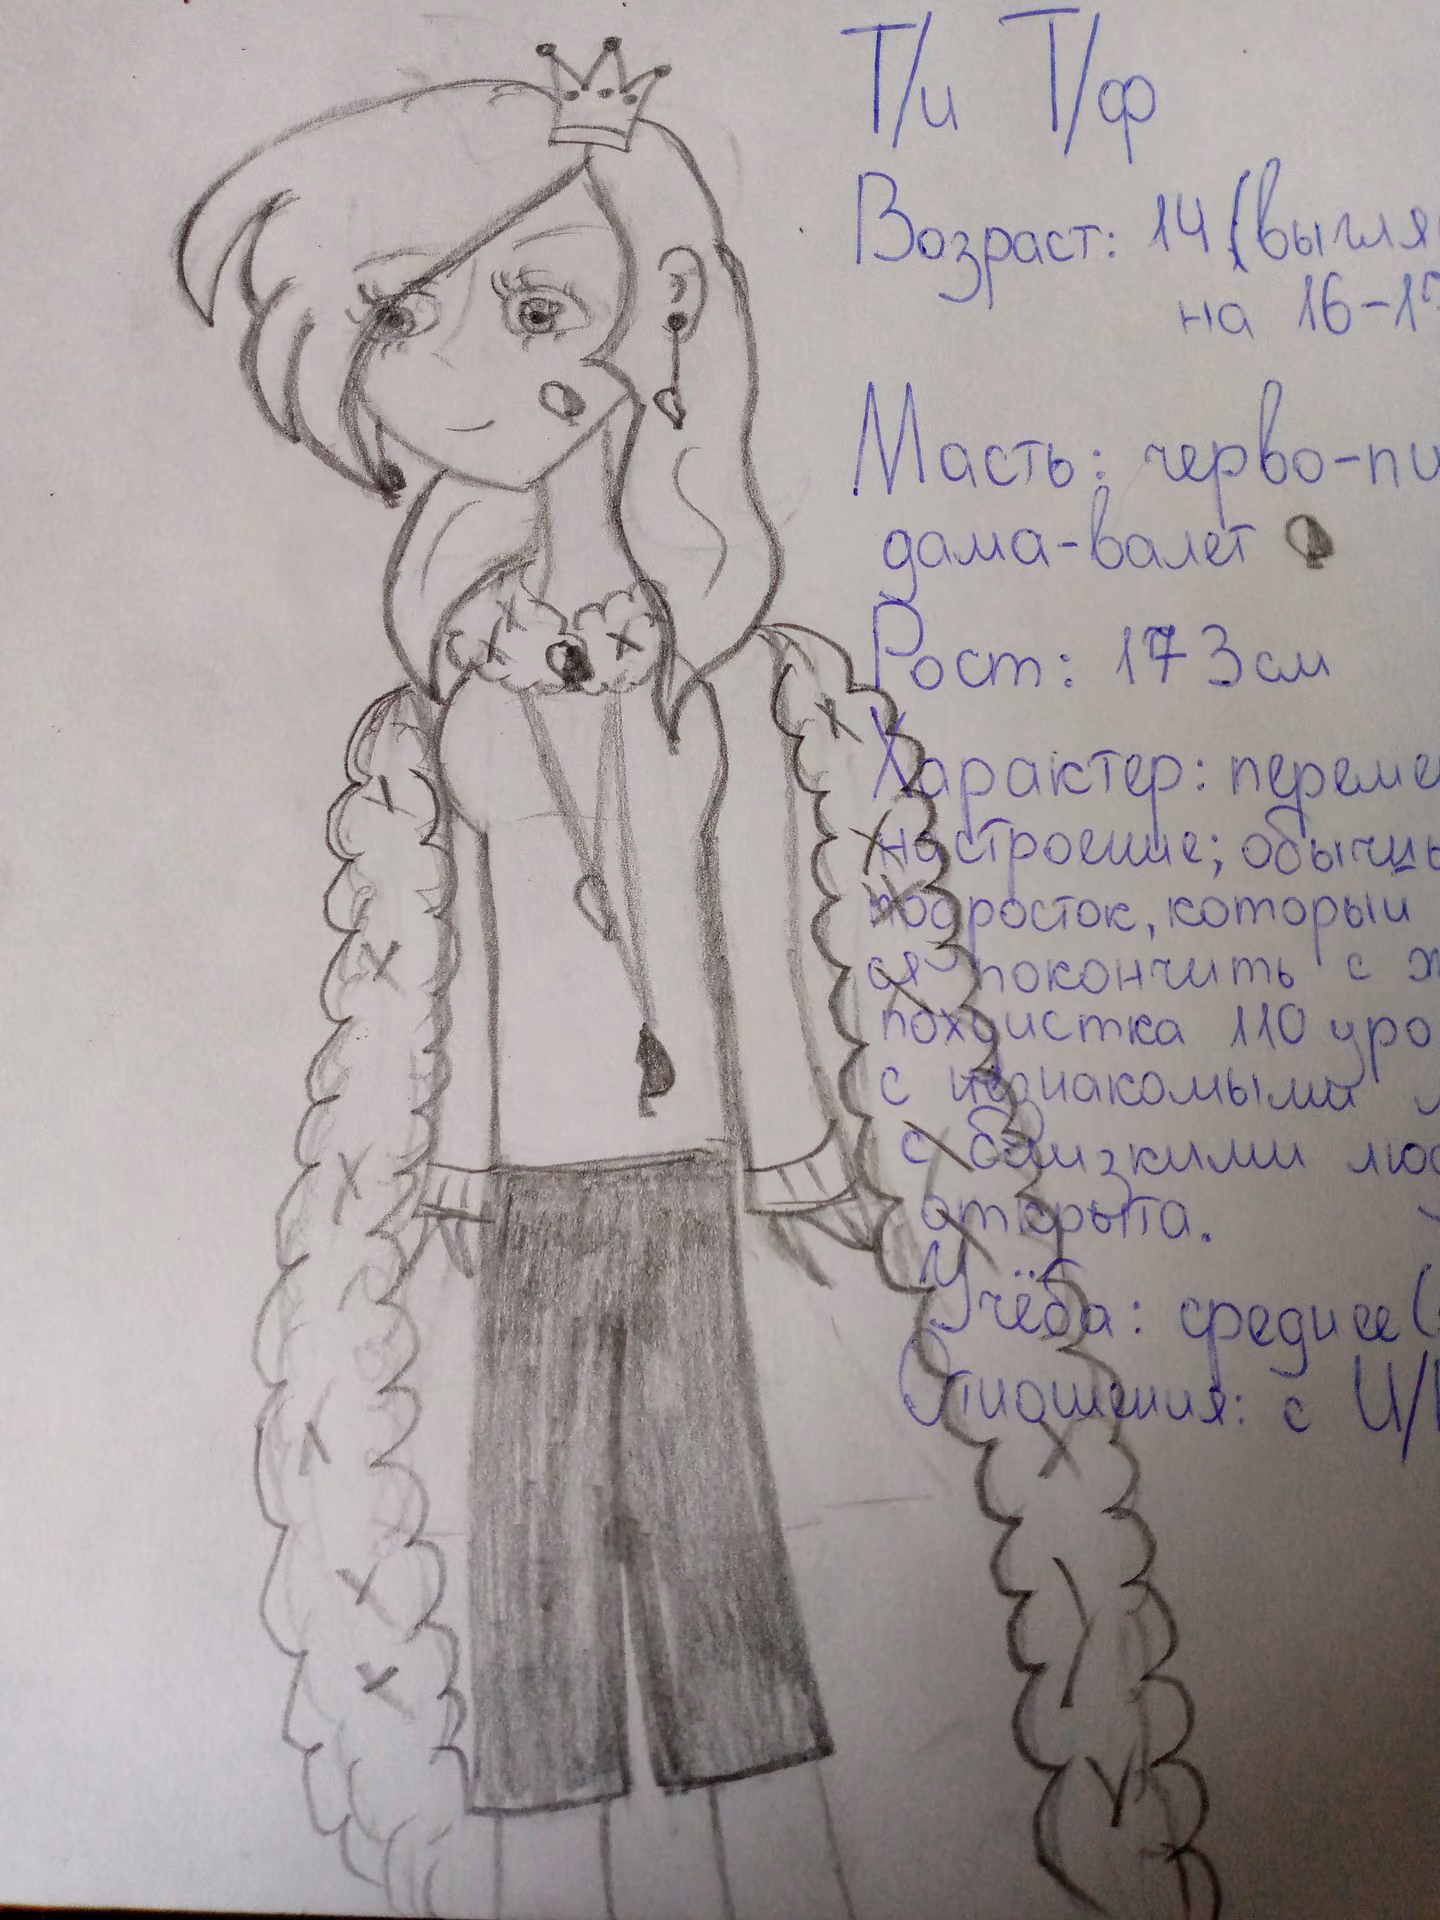 Т/и Т/ф
Возраст: 14 (выгля
на 16-17
Масть: черво-пи
дама-валет
Рост: 173 см
Характер: переме
настроение; обычны
подросток, который
ся покончить с ж
похуистка 110 уро
с незнакомыми л
с близкими лю
открыта.
Учёба: среднее (
Отношения: с И/